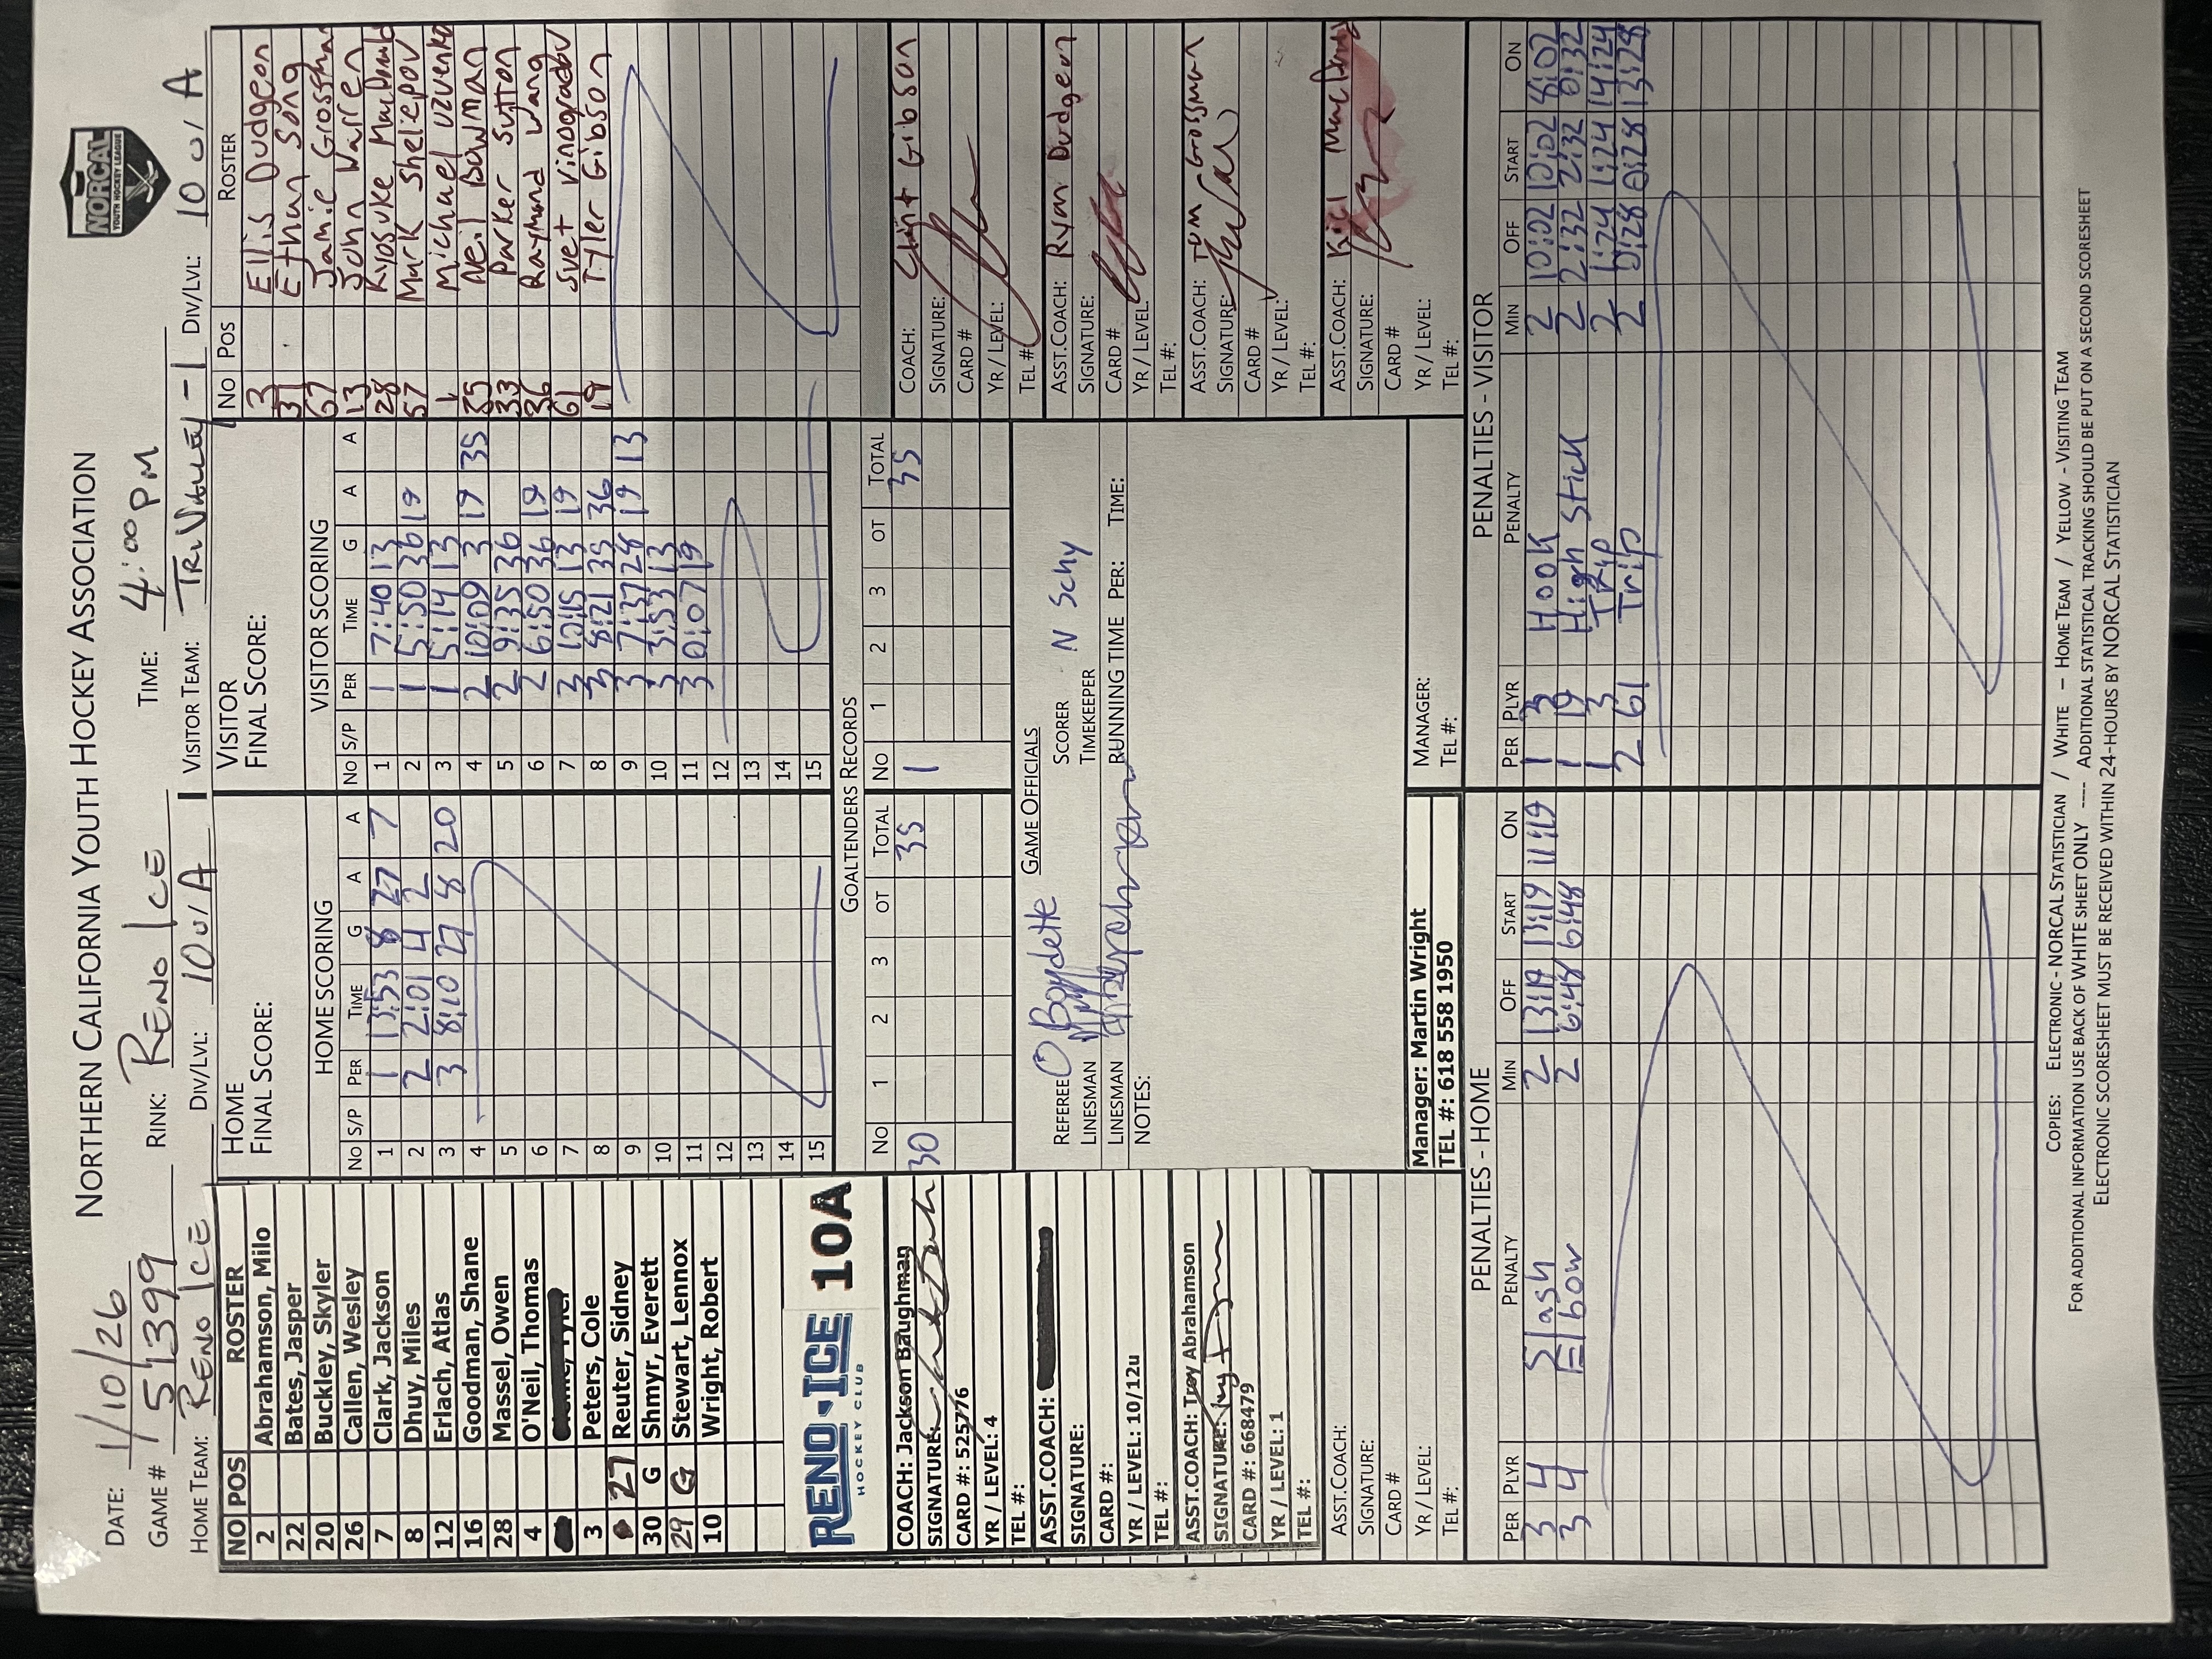 NORTHERN CALIFORNIA YOUTH HOCKEY ASSOCIATION
NORCAL
YOUTH HOCKEY LEAGUE
DATE: 1/10/26
GAME # 51399 RINK: RENO ICE TIME: 4:00 PM
HOME TEAM: RENO ICE DIV/LVL: 10U/A VISITOR TEAM: TRI VALLEY-1 DIV/LVL: 10U/A
NO POS ROSTER
2 Abrahamson, Milo
22 Bates, Jasper
20 Buckley, Skyler
26 Callen, Wesley
7 Clark, Jackson
8 Dhuy, Miles
12 Erlach, Atlas
16 Goodman, Shane
28 Massel, Owen
4 O'Neil, Thomas
3 Peters, Cole
27 Reuter, Sidney
30 G Shmyr, Everett
29 G Stewart, Lennox
10 Wright, Robert
RENO·ICE 10A
HOCKEY CLUB
HOME
FINAL SCORE:
HOME SCORING
NO S/P PER TIME G A A
1 1 13:53 8 27 7
2 2 2:01 4 2
3 3 8:10 27 8 20
4
5
6
7
8
9
10
11
12
13
14
15
VISITOR
FINAL SCORE:
VISITOR SCORING
NO S/P PER TIME G A A
1 1 7:40 13
2 1 5:50 36 19
3 1 5:14 13
4 2 10:09 3 19 35
5 2 9:35 36
6 2 6:50 36 19
7 3 10:15 13 19
8 3 8:21 35 36
9 3 7:37 28 19 13
10 3 3:53 13
11 3 0:07 19
12
13
14
15
NO POS ROSTER
3 Ellis Dudgeon
31 Ethan Song
67 Jamie Grossman
13 John Warren
28 Kyosuke
57 Mark Shelepov
1 Michael Uzvenko
35 Neil Bowman
33 Parker Sutton
36 Raymond Wang
61 Svet Vinogradov
19 Tyler Gibson
GOALTENDERS RECORDS
NO 1 2 3 OT TOTAL NO 1 2 3 OT TOTAL
30 35 1 35
COACH: Jackson Baughman
SIGNATURE:
CARD #: 525776
YR / LEVEL: 4
TEL #:
ASST.COACH:
SIGNATURE:
CARD #:
YR / LEVEL: 10/12u
TEL #:
ASST.COACH: Troy Abrahamson
SIGNATURE:
CARD #: 668479
YR / LEVEL: 1
TEL #:
ASST.COACH:
SIGNATURE:
CARD #
YR / LEVEL:
TEL #:
GAME OFFICIALS
REFEREE Boydette SCORER N Schy
LINESMAN TIMEKEEPER
LINESMAN RUNNING TIME PER: TIME:
NOTES:
Manager: Martin Wright
TEL #: 618 558 1950
MANAGER:
TEL #:
COACH: Clint Gibson
SIGNATURE:
CARD #
YR / LEVEL:
TEL #:
ASST.COACH: Ryan Dudgeon
SIGNATURE:
CARD #
YR / LEVEL:
TEL #:
ASST.COACH: Tom Grossman
SIGNATURE:
CARD #
YR / LEVEL:
TEL #:
ASST.COACH:
SIGNATURE:
CARD #
YR / LEVEL:
TEL #:
PENALTIES - HOME
PER PLYR PENALTY MIN OFF START ON
3 4 Slash 2 13:19 13:19 11:19
3 4 Elbow 2 6:48 6:48
PENALTIES - VISITOR
PER PLYR PENALTY MIN OFF START ON
1 3 Hook 2 10:02 10:02 8:02
1 19 High Stick 2 2:32 2:32 0:32
1 3 Trip 2 1:24 1:24 14:24
2 61 Trip 2 0:28 0:28 13:28
COPIES: ELECTRONIC - NORCAL STATISTICIAN / WHITE - HOME TEAM / YELLOW - VISITING TEAM
FOR ADDITIONAL INFORMATION USE BACK OF WHITE SHEET ONLY ---- ADDITIONAL STATISTICAL TRACKING SHOULD BE PUT ON A SECOND SCORESHEET
ELECTRONIC SCORESHEET MUST BE RECEIVED WITHIN 24-HOURS BY NORCAL STATISTICIAN